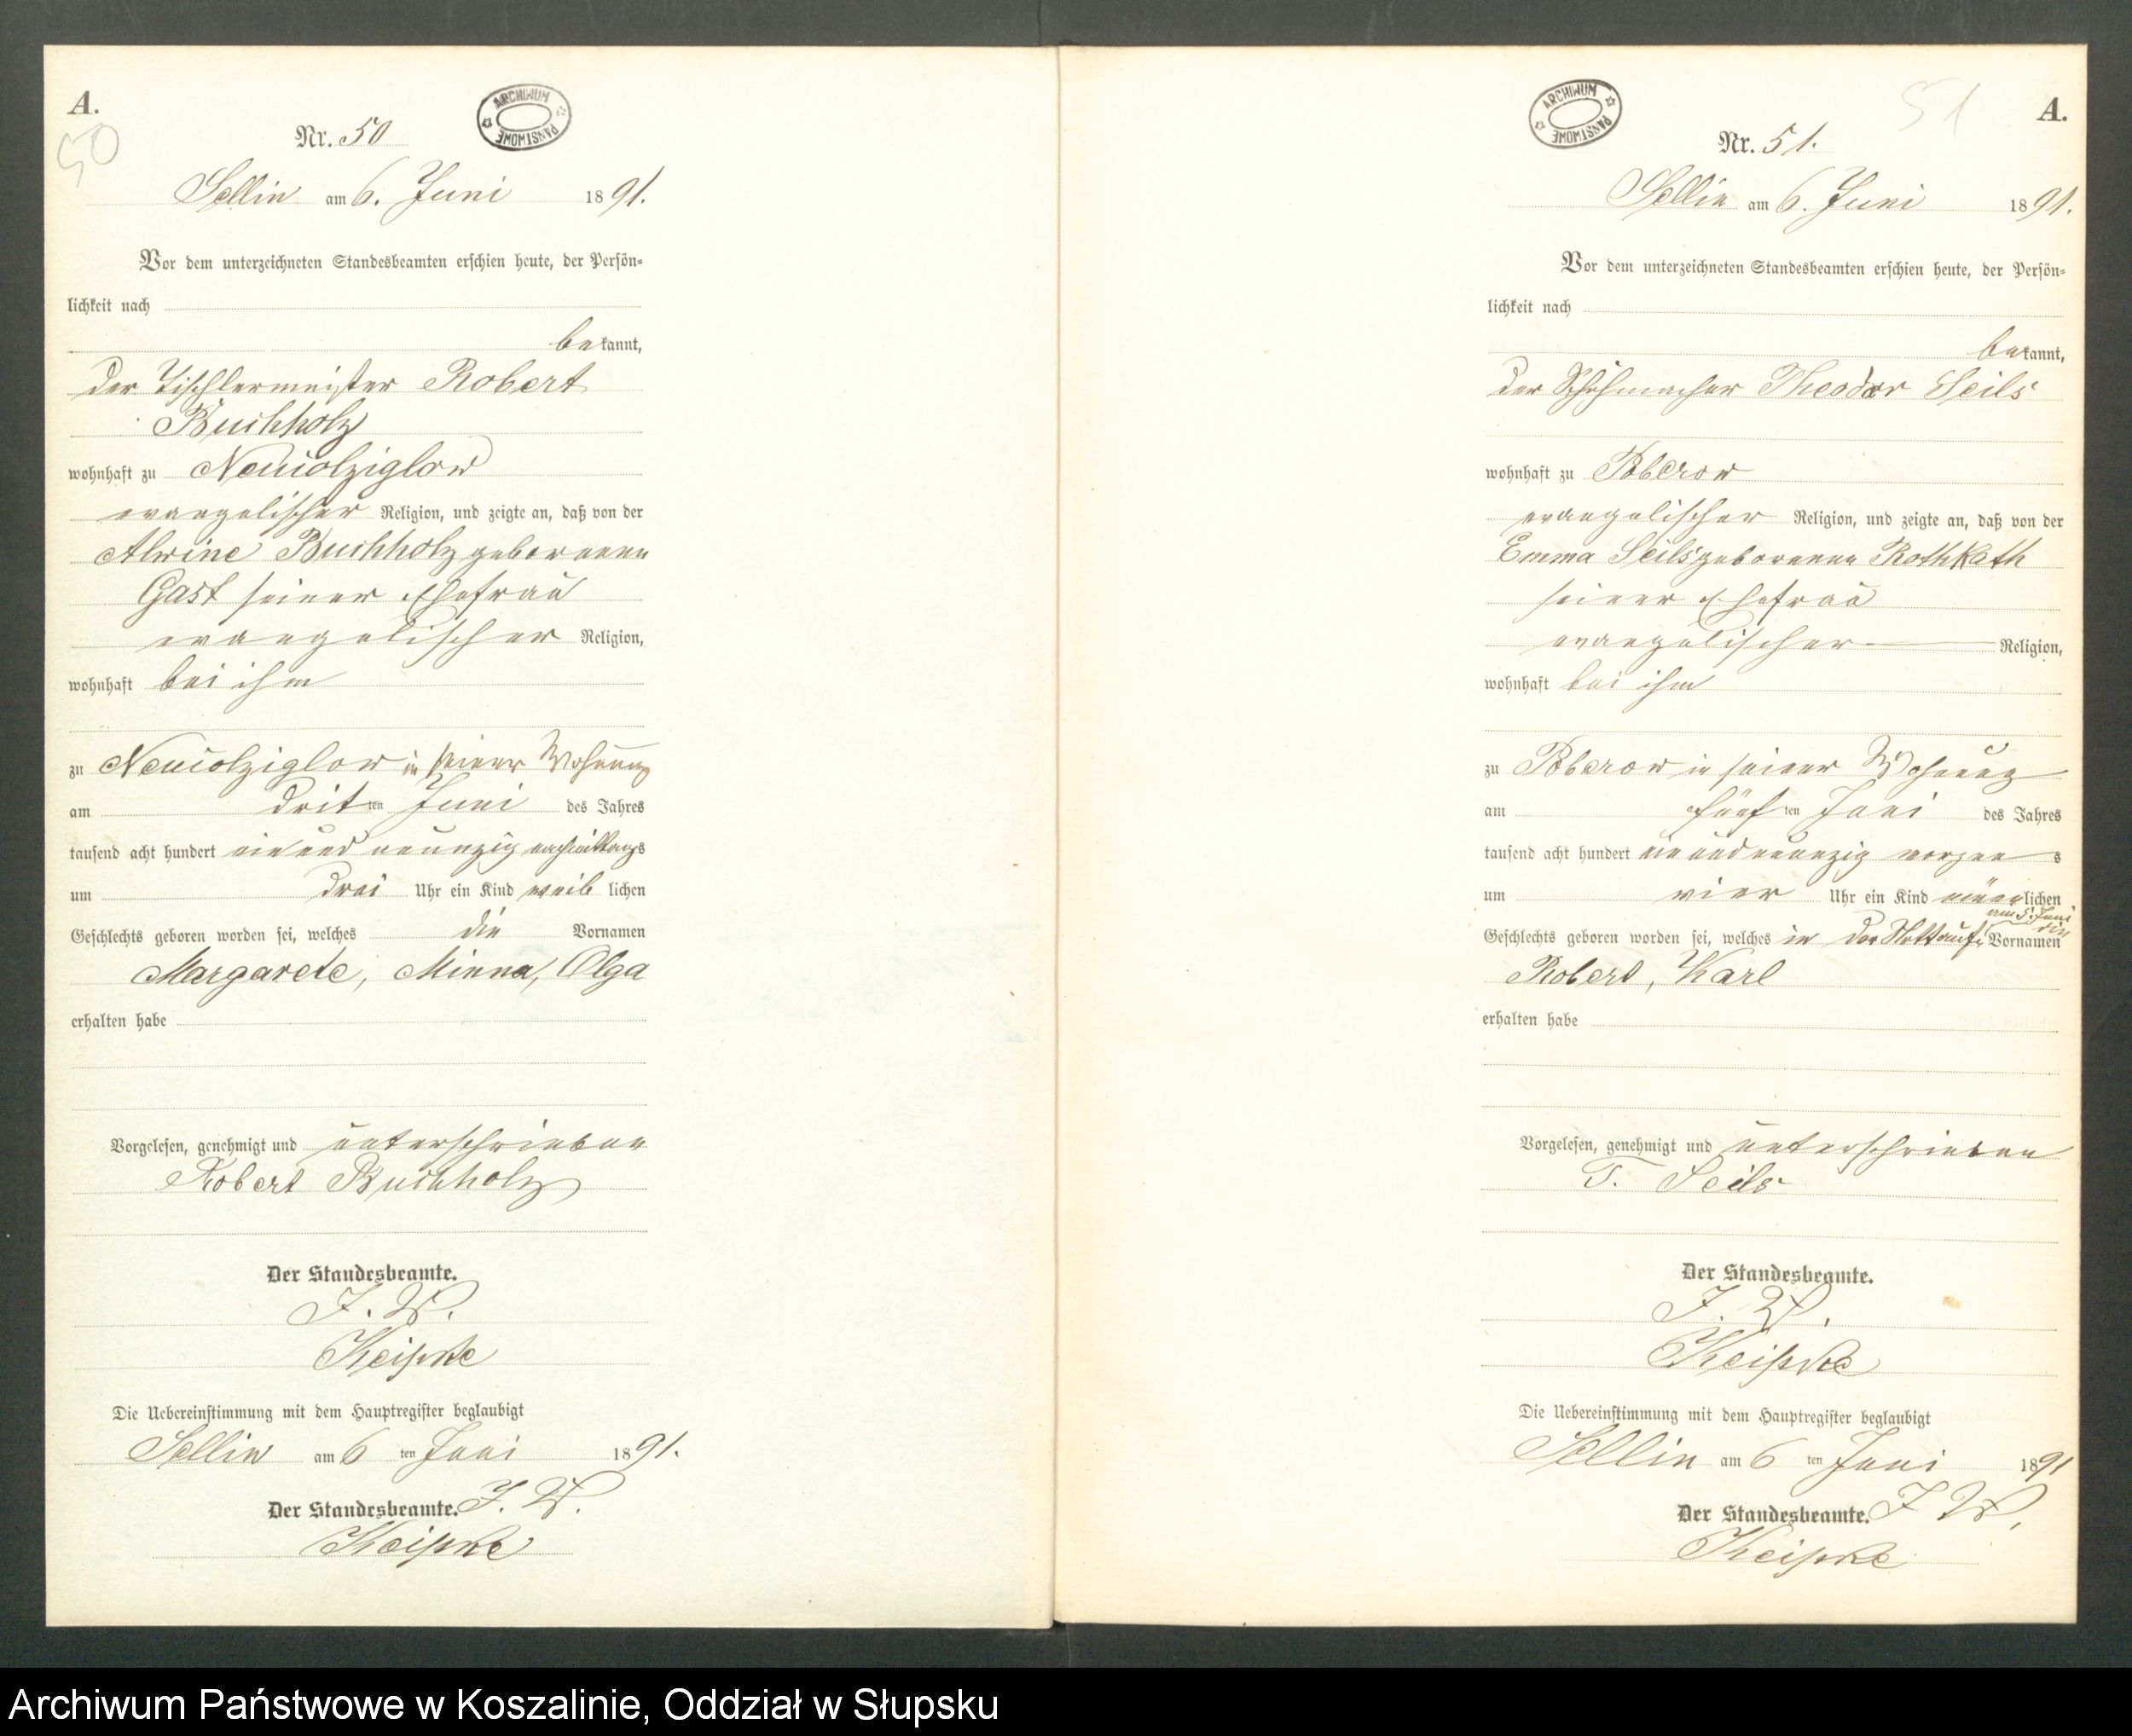 A.
50
ARCHIWUM PAŃSTWOWE
Nr. 50
Sellin am 6. Juni 1891.
Vor dem unterzeichneten Standesbeamten erschien heute, der Persön-
lichkeit nach
bekannt,
der Tischlermeister Robert
Buchholz
wohnhaft zu Neuwolziglow
evangelischer Religion, und zeigte an, daß von der
Alwine Buchholz geborenen
Gast seiner Ehefrau
evangelischer Religion,
wohnhaft bei ihm
zu Neuwolziglow in seiner Wohnung
am dritten Juni des Jahres
tausend acht hundert ein und neunzig nachmittags
um drei Uhr ein Kind weiblichen
Geschlechts geboren worden sei, welches die Vornamen
Margarete, Minna, Olga
erhalten habe
Vorgelesen, genehmigt und unterschrieben
Robert Buchholz
Der Standesbeamte.
J. V.
Keipke
Die Uebereinstimmung mit dem Hauptregister beglaubigt
Sellin am 6 ten Juni 1891.
Der Standesbeamte. J. V.
Keipke
51
A.
ARCHIWUM PAŃSTWOWE
Nr. 51.
Sellin am 6. Juni 1891.
Vor dem unterzeichneten Standesbeamten erschien heute, der Persön-
lichkeit nach
bekannt,
der Schuhmacher Theodor Seils
wohnhaft zu Poberow
evangelischer Religion, und zeigte an, daß von der
Emma Seils geborenen Rothkath
seiner Ehefrau
evangelischer Religion,
wohnhaft bei ihm
zu Poberow in seiner Wohnung
am fünften Juni des Jahres
tausend acht hundert ein und neunzig morgens
um vier Uhr ein Kind männlichen
am 5. Juni
die
Geschlechts geboren worden sei, welches in der Nottaufe Vornamen
Robert, Karl
erhalten habe
Vorgelesen, genehmigt und unterschrieben
T. Seils
Der Standesbeamte.
J. V.
Keipke
Die Uebereinstimmung mit dem Hauptregister beglaubigt
Sellin am 6 ten Juni 1891
Der Standesbeamte. J V.
Keipke
Archiwum Państwowe w Koszalinie, Oddział w Słupsku